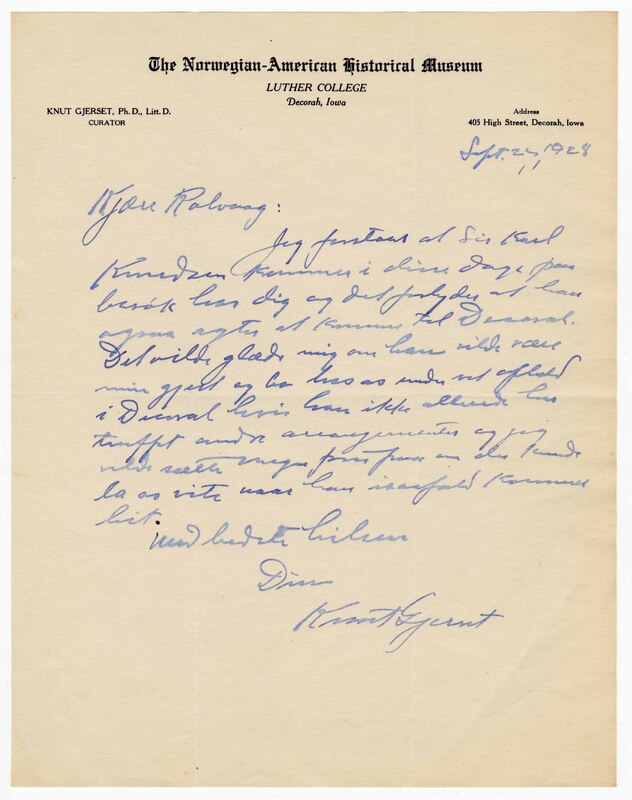 The Norwegian-American Historical Museum
LUTHER COLLEGE
Decorah, Iowa
KNUT GJERSET, Ph. D., Litt. D.
CURATOR
Address
405 High Street, Decorah, Iowa
Sept. 1928
Kjære Rolvaag:
Jeg forstaar at Sir Karl
Knudsen kommer i disse dage paa
besøk hos dig og det forlydes at han
ogsaa agter at komme til Decorah.
Det vilde glæde mig om han vilde være
min gjest og bo hos os under sit ophold
i Decorah hvis han ikke allerede har
truffet andre arrangementer og jeg
vilde sætte megen pris paa om du kunde
la os vite naar han isaafald kommer
hit.
Med bedste hilsen
Din
Knut Gjerset